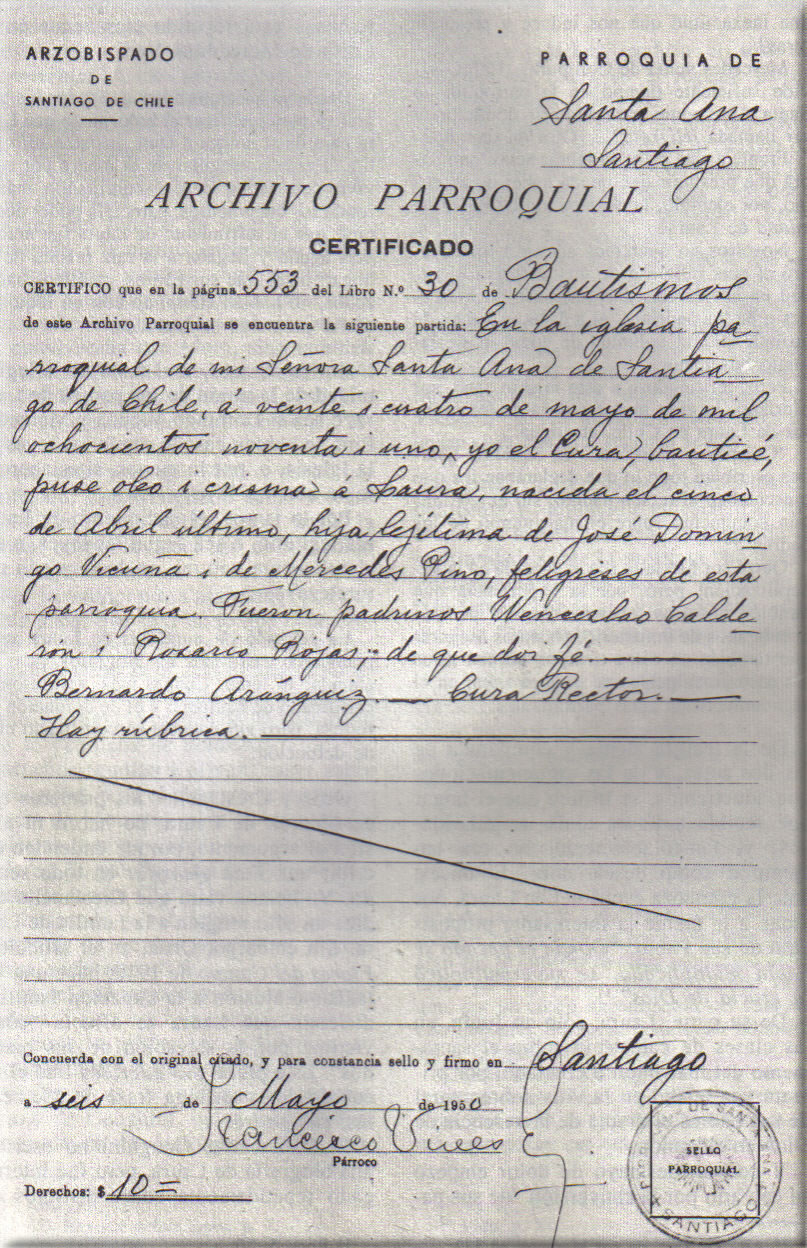 ARZOBISPADO
DE
SANTIAGO DE CHILE
PARROQUIA DE
Santa Ana
Santiago
ARCHIVO PARROQUIAL
CERTIFICADO
CERTIFICO que en la página 553 del Libro N.º 30 de Bautismos
de este Archivo Parroquial se encuentra la siguiente partida: En la iglesia pa
rroquial de mi Señora Santa Ana de Santia
go de Chile, á veinte i cuatro de mayo de mil
ochocientos noventa i uno, yo el Cura, bauticé,
puse oleo i crisma á Laura, nacida el cinco
de Abril último, hija lejítima de José Domin
go Vicuna i de Mercedes Pino, feligreses de esta
parroquia. Fueron padrinos Wenceslao Calde
ron i Rosario Rojas; de que doi fé.
Bernardo Aránguiz. — Cura Rector. —
Hay rúbrica.
Concuerda con el original citado, y para constancia sello y firmo en Santiago
a seis de Mayo de 1950
Francisco Vives
Párroco
Derechos: $ 10 =
SELLO
PARROQUIAL
SANTIAGO